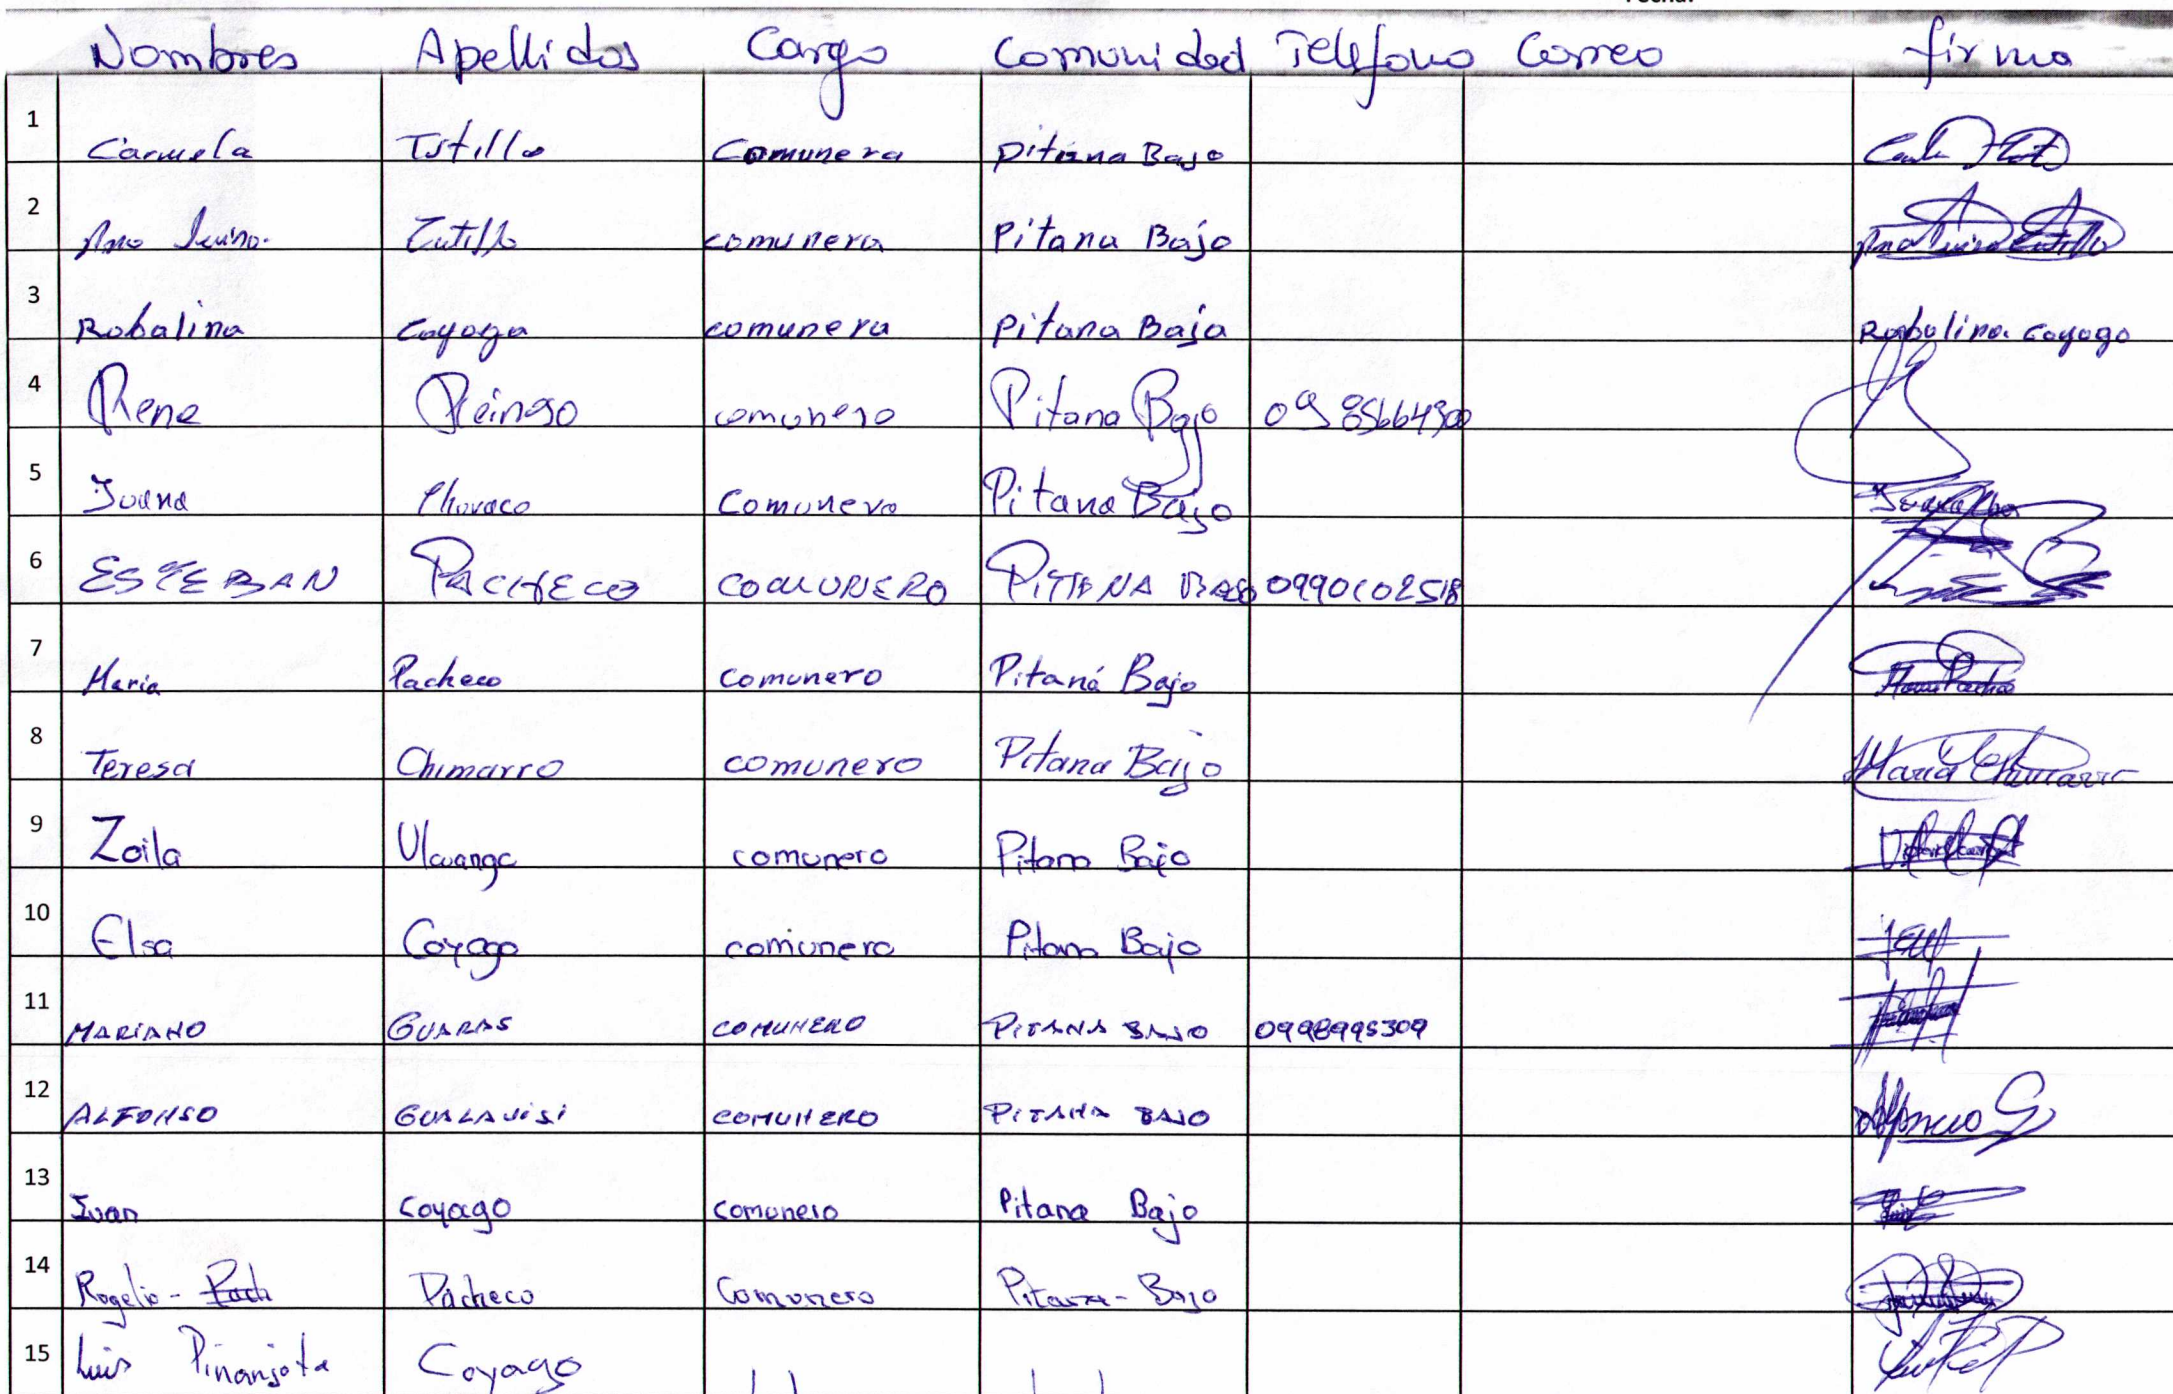 Nombres Apellidos Cargo Comunidad Telefono Correo firma
1 Carmela Tutillo Comunera Pitana Bajo
2 Ana Luisa. Tutillo comunera Pitana Bajo Ana Luisa Tutillo
3 Robalina Coyago comunera Pitana Bajo Robalina Coyago
4 Rene Reinoso comunero Pitana Bajo
5 Juana comunero Pitana Bajo
6 ESTEBAN PACHECO COMUNERO PITANA BAJO
7 Maria Pacheco comunero Pitaná Bajo
8 Teresa Chimarro comunero Pitana Bajo Maria Chimarro
9 Zoila Ulcuango comunero Pitana Bajo
10 Elsa Coyago comunero Pitana Bajo
11 MARIANO GUARAS COMUNERO PITANA BAJO 0998995309
12 ALFONSO GUALAVISI COMUNERO PITANA BAJO Alfoncio G
13 Juan Coyago comunero Pitana Bajo
14 Rogelio - Pach Pacheco Comunero Pitana - Bajo
15 Luis Coyago